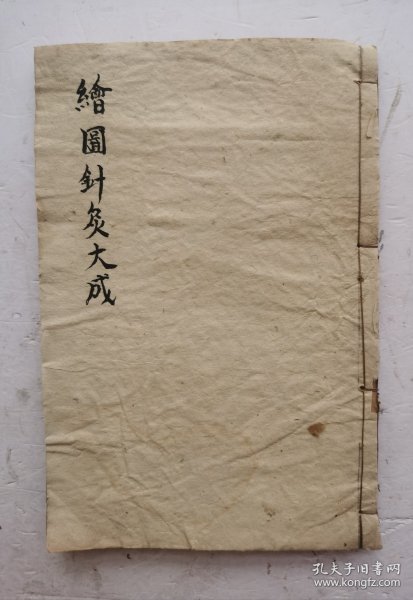 繪圖針灸大成
孔夫子旧书网
www.kongfz.com